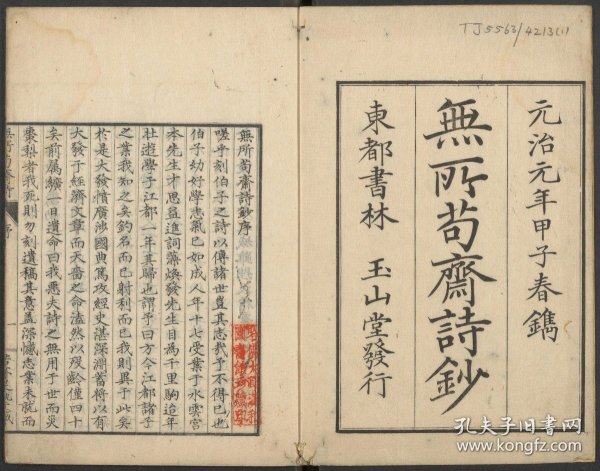 TJ5563/4213(1)
元治元年甲子春鐫
無所苟齋詩鈔
東都書林 玉山堂發行
無所苟齋詩鈔序
嗟乎刻伯子之詩以傳諸世豈其志哉予不得已也
伯子幼好學志氣已如成人年十七受業于水雲宮
本先生才思益進詞藻煥發先生目為千里駒迨年
壯遊學于江都一年其歸也謂予曰方今江都諸子
之業我知之矣釣名而已射利而已我則異于此矣
於是大發憤廣涉國典篤攻經史湛深淵蓄將以有
大發于經濟文章而天嗇之命溘然以歿齡僅四十
矣前屬纊一日遺命曰我惡夫詩之無用于世而災
棗梨者我死則勿刻遺稿其意蓋深憾志業未就而
孔夫子旧书网
www.kongfz.com